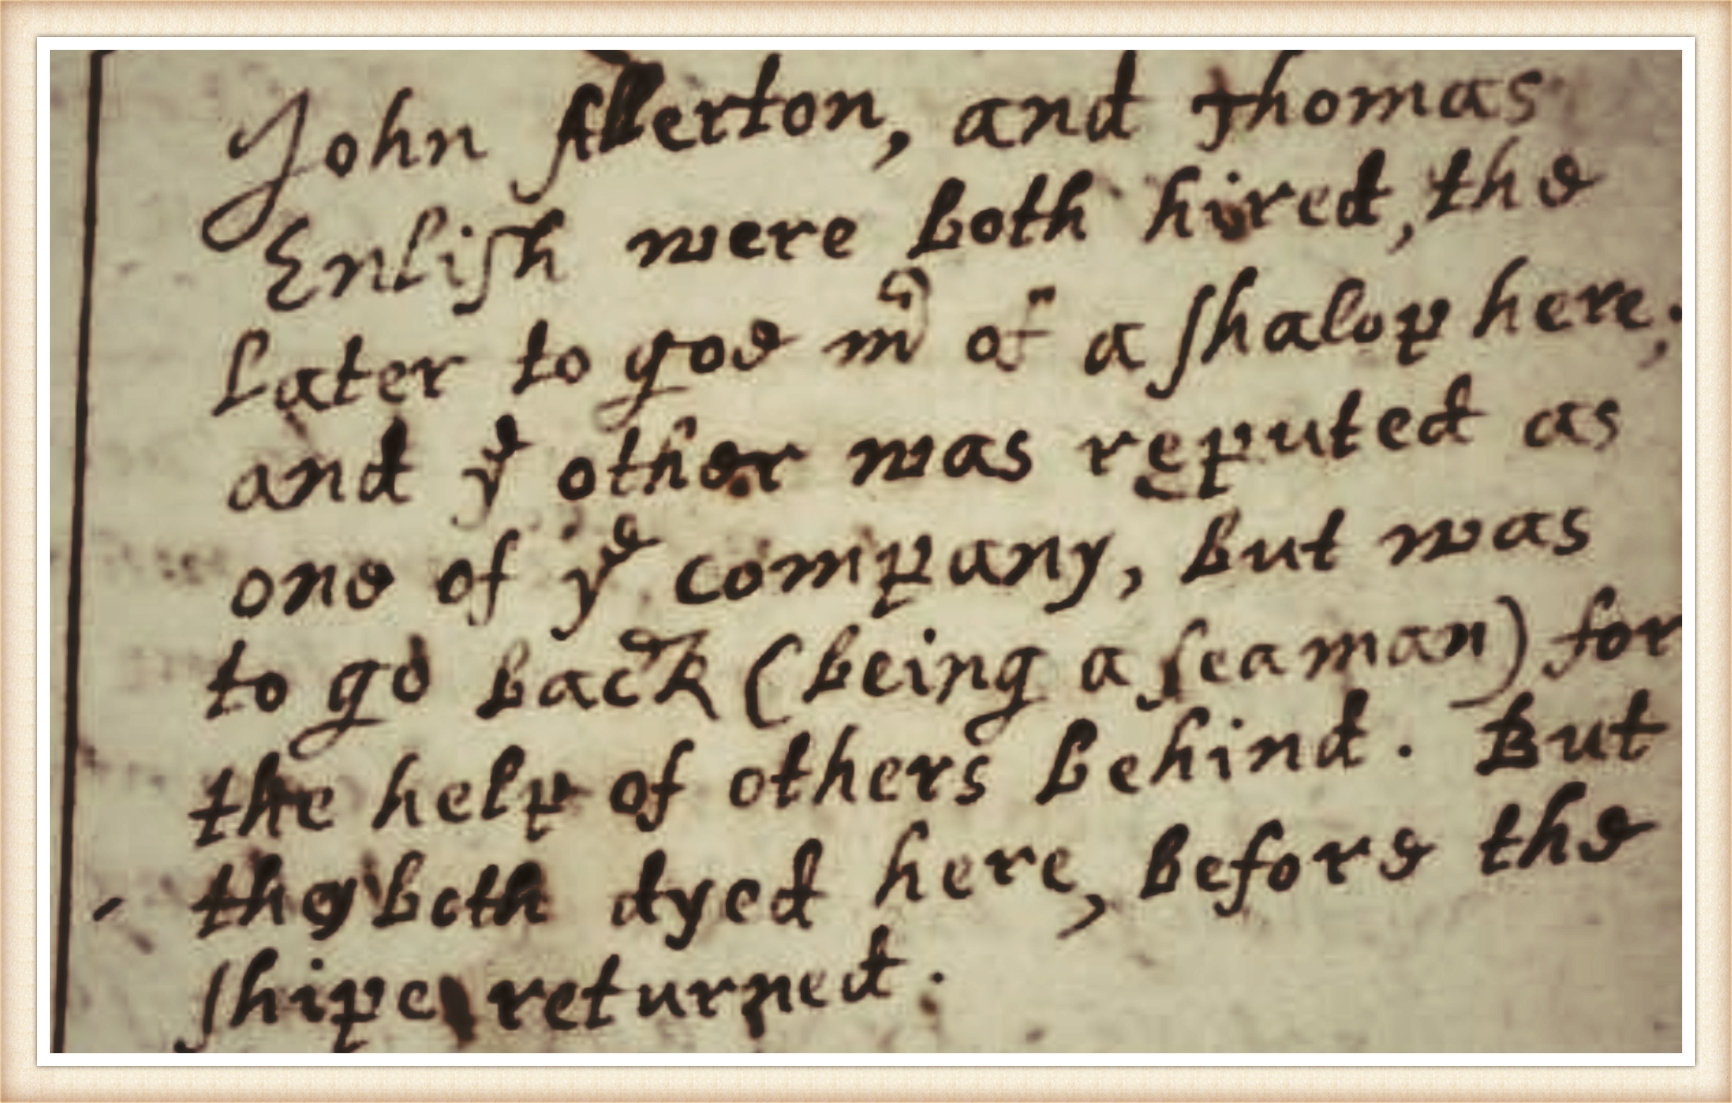 John Allerton, and Thomas
Enlish were both hired, the
later to goe mr of a shalop here,
and ye other was reputed as
one of ye company, but was
to go back (being a seaman) for
the help of others behind. But
they both dyed here, before the
shipe returned.